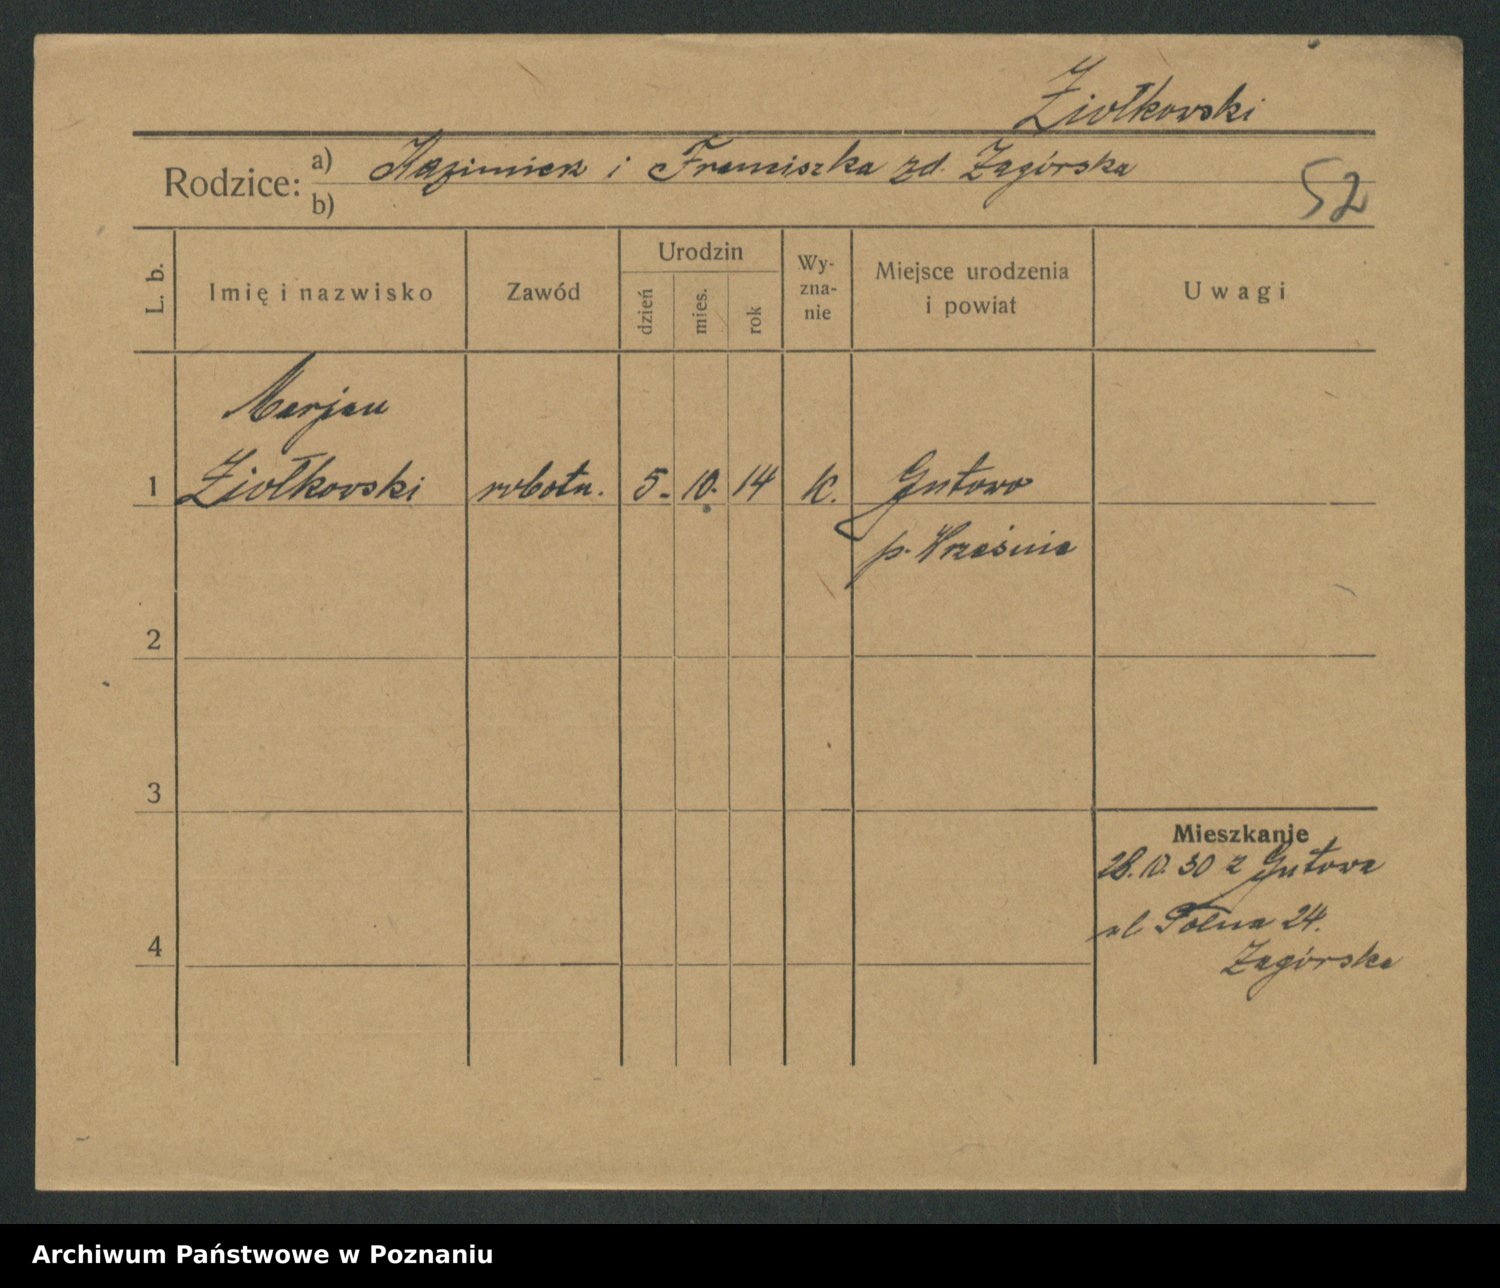 Ziołkovski
Rodzice: a) Kazimierz i Franciszka zd. Zagórska
b)
52
L. b.
Imię i nazwisko
Zawód
Urodzin
dzień
mies.
rok
Wy-
zna-
nie
Miejsce urodzenia
i powiat
Uwagi
Marjan
1 Ziołkovski robotn. 5. 10. 14 K. Gutowo
p. Września
2
3
Mieszkanie
28.10.30 z Gutowa
ul Polna 24.
4
Zagórska
Archiwum Państwowe w Poznaniu